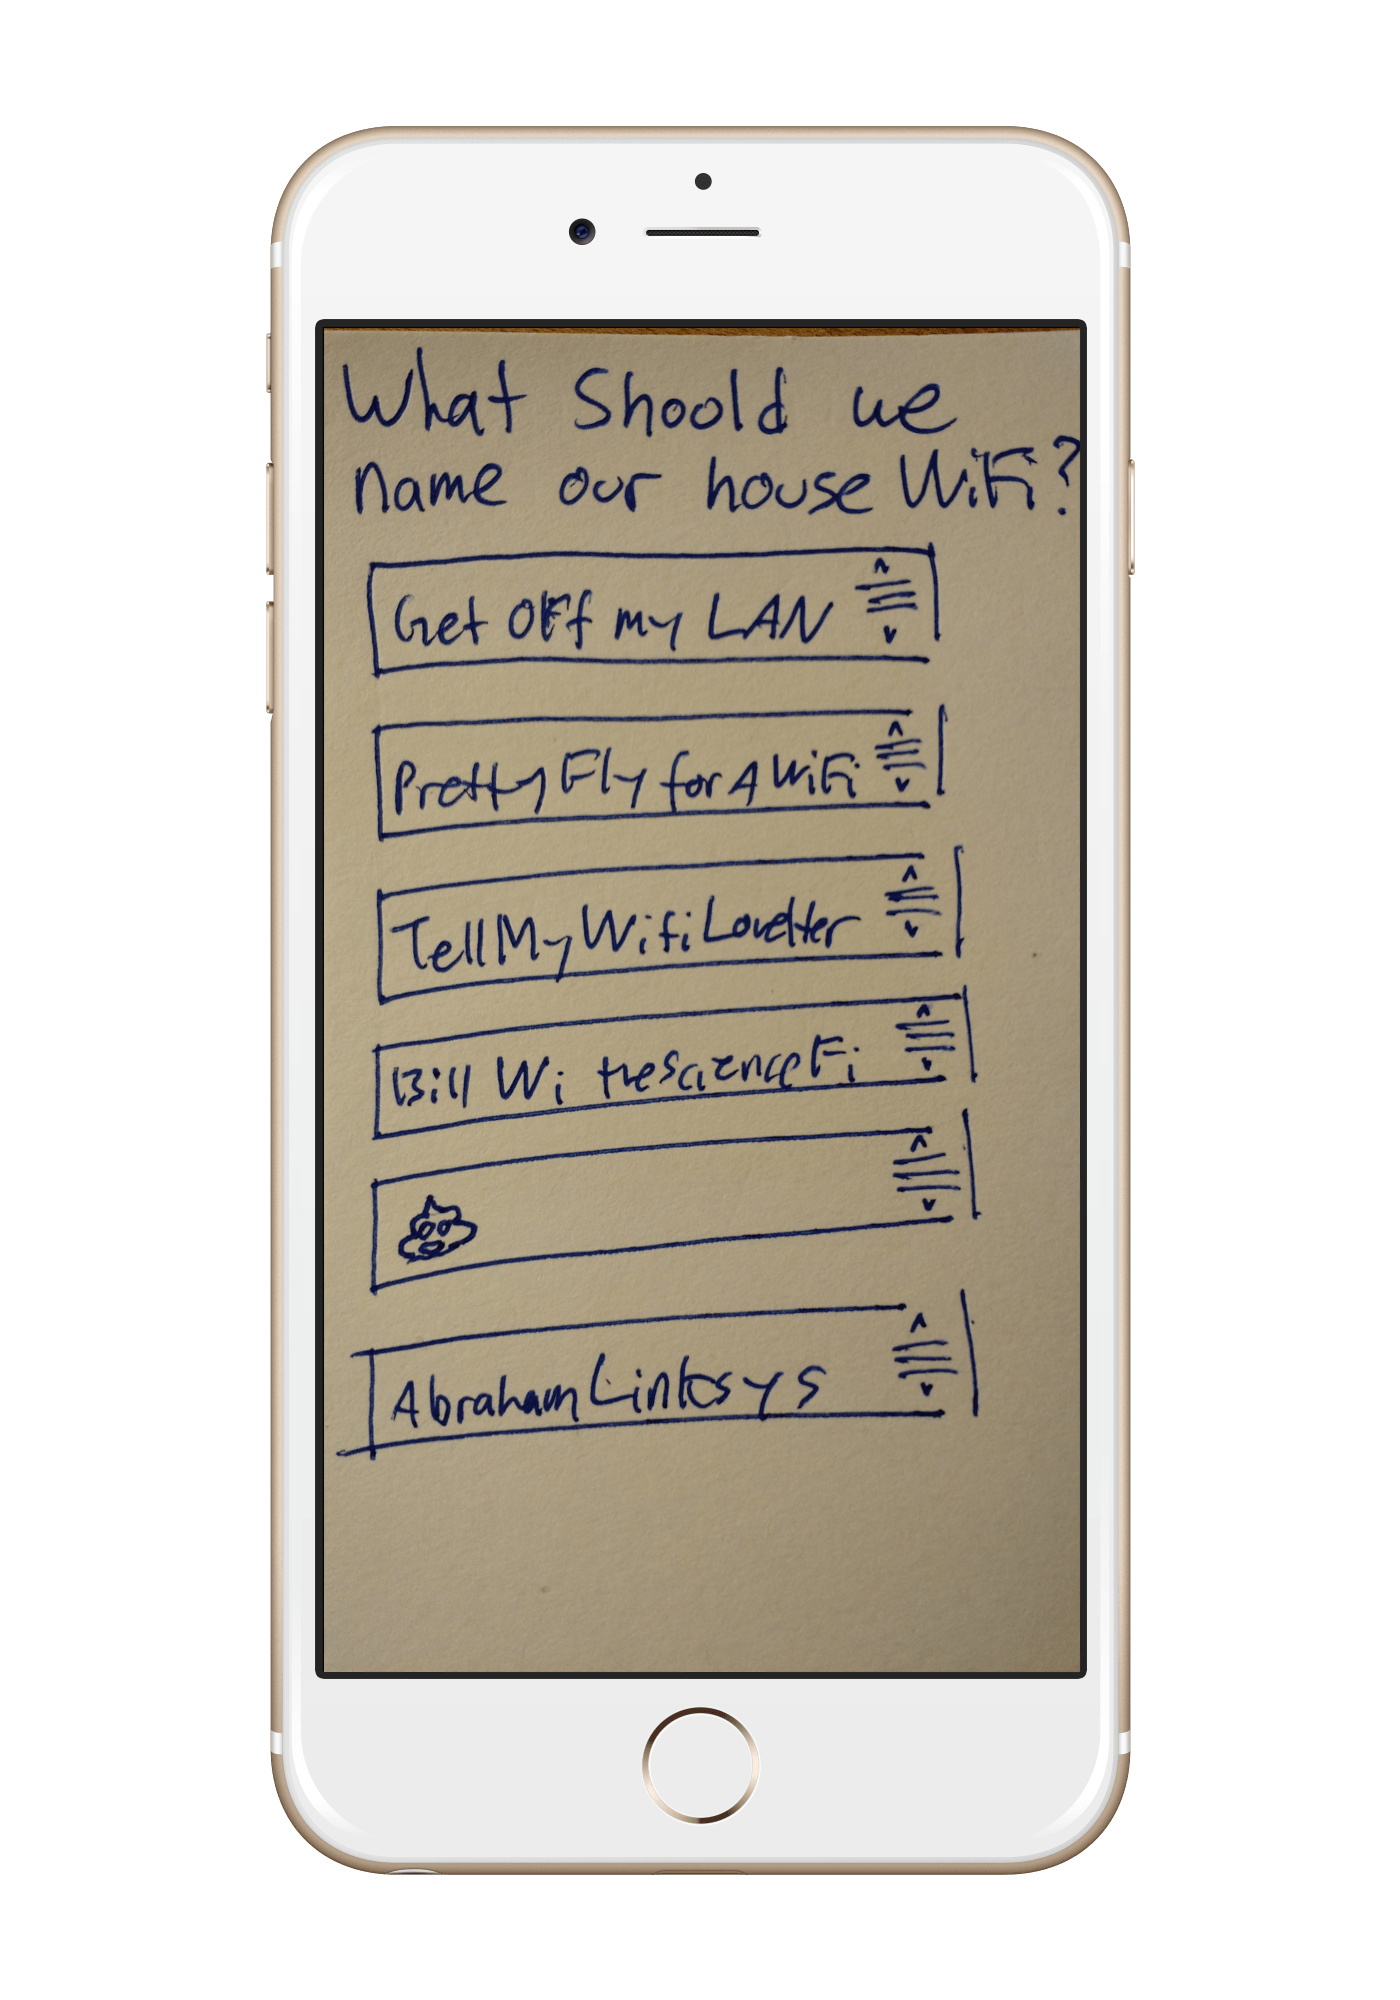 What Shoold we
name our house WiFi?
Get OFf my LAN
Pretty Fly for A WiFi
TellMyWifiLoveHer
Bill Wi theScienceFi
AbrahamLinksys